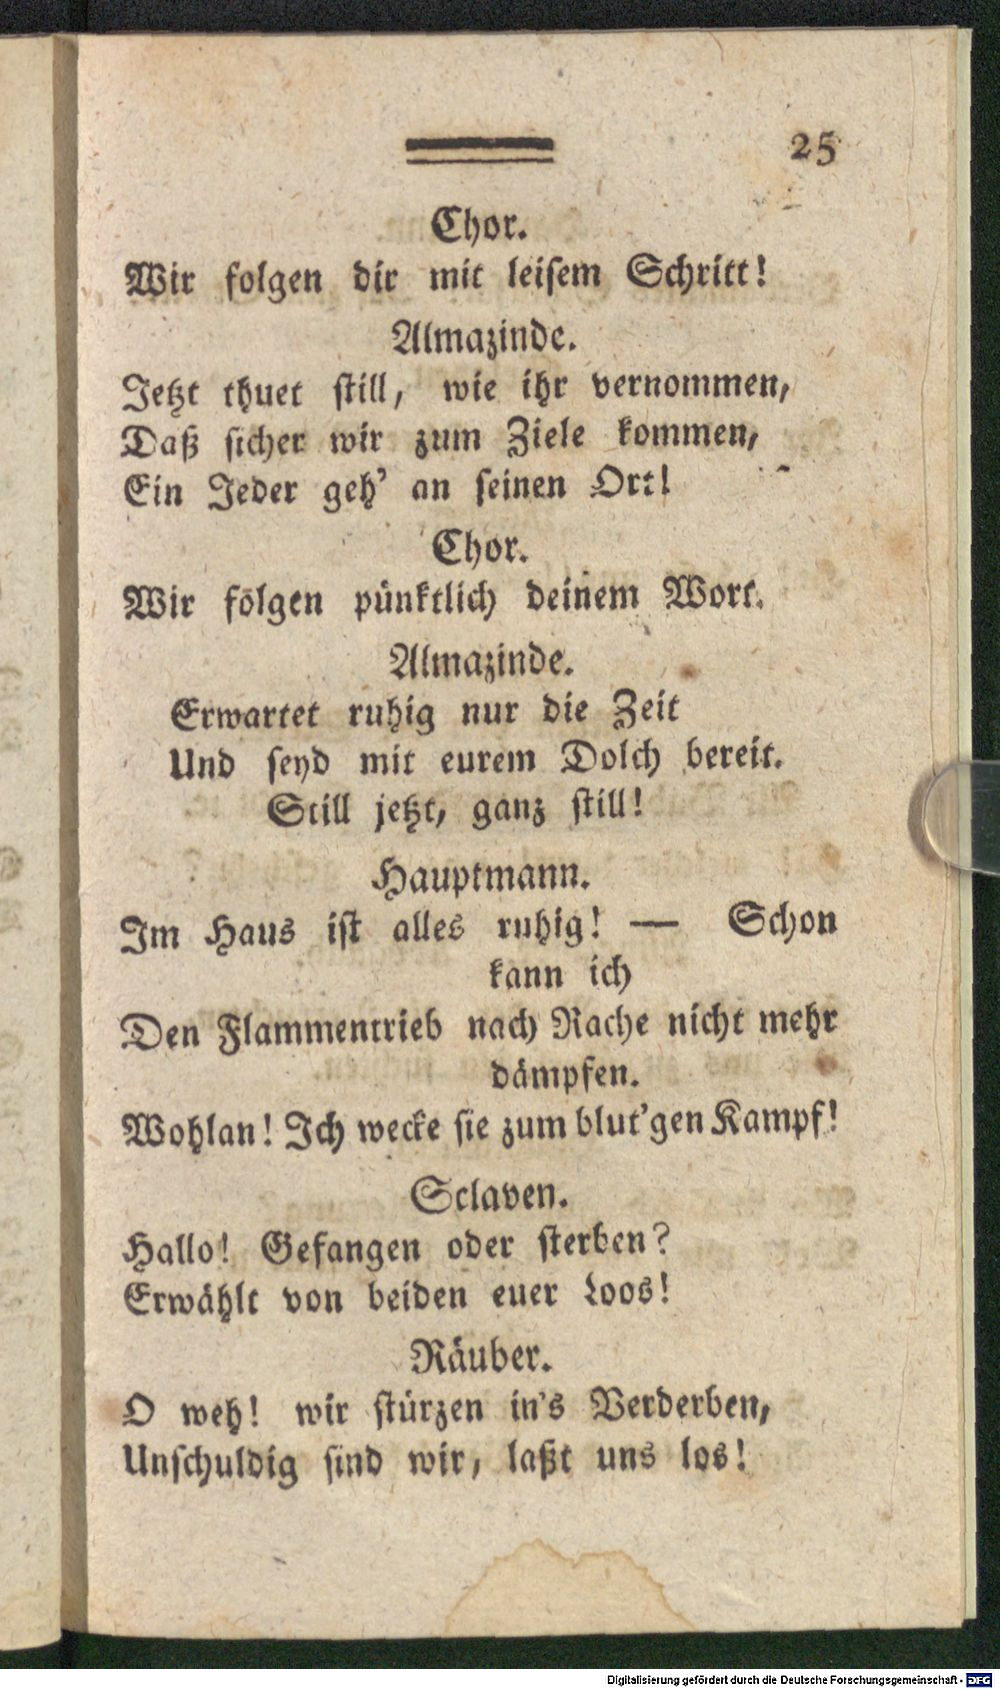 25
Chor.
Wir folgen dir mit leisem Schritt!
Almazinde.
Jetzt thuet still, wie ihr vernommen,
Daß sicher wir zum Ziele kommen,
Ein Jeder geh' an seinen Ort!
Chor.
Wir folgen pünktlich deinem Wort.
Almazinde.
Erwartet ruhig nur die Zeit
Und seyd mit eurem Dolch bereit.
Still jetzt, ganz still!
Hauptmann.
Im Haus ist alles ruhig! — Schon
kann ich
Den Flammentrieb nach Rache nicht mehr
dämpfen.
Wohlan! Ich wecke sie zum blut'gen Kampf!
Sclaven.
Hallo! Gefangen oder sterben?
Erwählt von beiden euer Loos!
Räuber.
O weh! wir stürzen in's Verderben,
Unschuldig sind wir, laßt uns los!
Digitalisierung gefördert durch die Deutsche Forschungsgemeinschaft - DFG